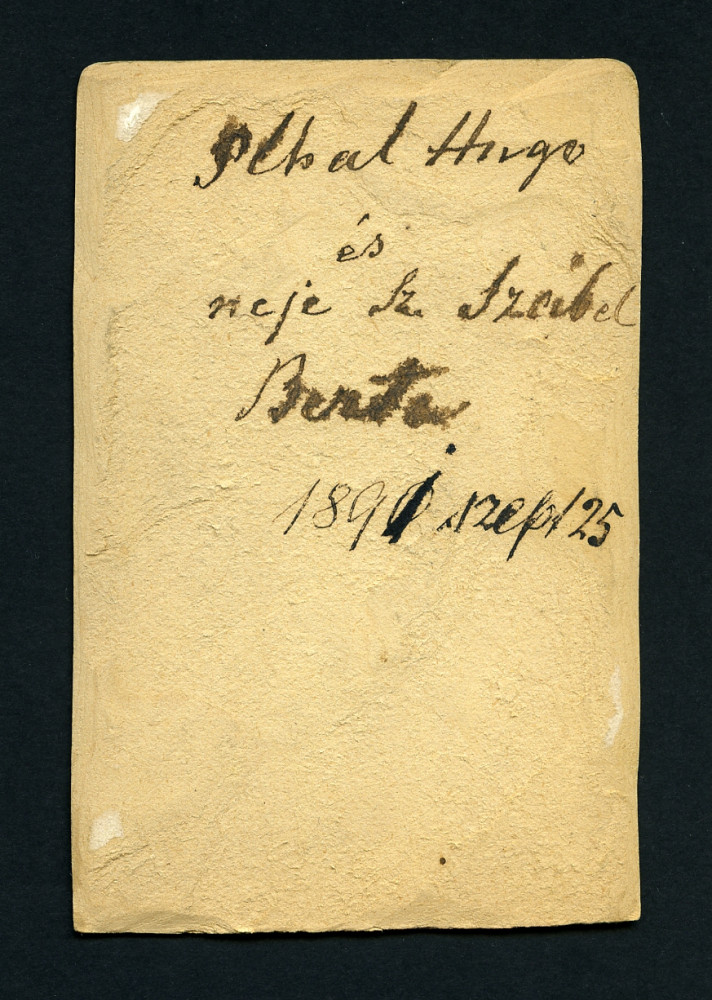 Plhal Hugo
és
neje Sz. Szeibel
Berta
189 szept 25